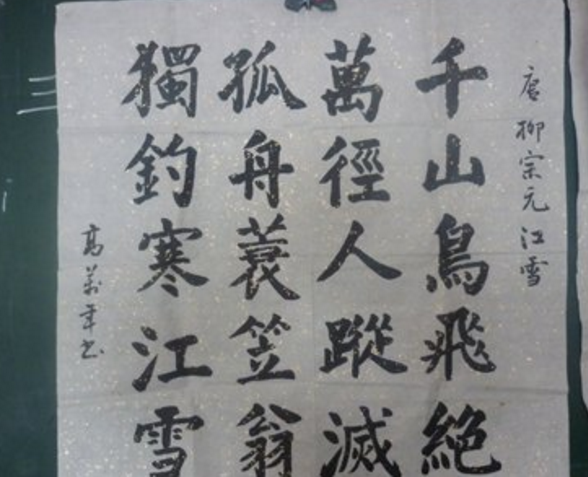 唐柳宗元江雪
千山鳥飛絕
萬徑人蹤滅
孤舟蓑笠翁
獨釣寒江雪
高萬年书